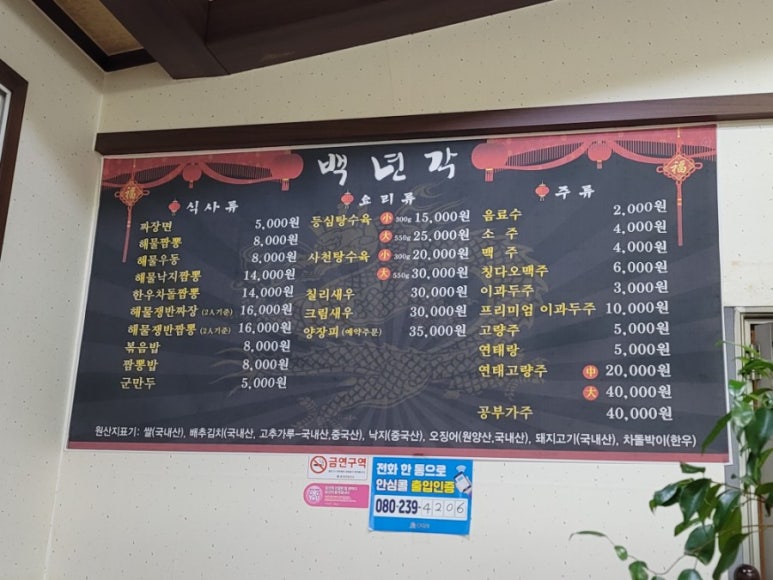 백년각
福
福
식사류
짜장면 5,000원
해물짬뽕 8,000원
해물우동 8,000원
해물낙지짬뽕 14,000원
한우차돌짬뽕 14,000원
해물쟁반짜장 (2人기준) 16,000원
해물쟁반짬뽕 (2人기준) 16,000원
볶음밥 8,000원
짬뽕밥 8,000원
군만두 5,000원
요리류
등심탕수육 小 300g 15,000원
大 550g 25,000원
사천탕수육 小 300g 20,000원
大 550g 30,000원
칠리새우 30,000원
크림새우 30,000원
양장피 (예약주문) 35,000원
주류
음료수 2,000원
소주 4,000원
맥주 4,000원
칭다오맥주 6,000원
이과두주 3,000원
프리미엄 이과두주 10,000원
고량주 5,000원
연태랑 5,000원
연태고량주 中 20,000원
大 40,000원
공부가주 40,000원
원산지표기: 쌀(국내산), 배추김치(국내산, 고추가루-국내산,중국산), 낙지(중국산), 오징어(원양산,국내산), 돼지고기(국내산), 차돌박이(한우)
금연구역
전화 한 통으로
안심콜 출입인증
080-239-4206